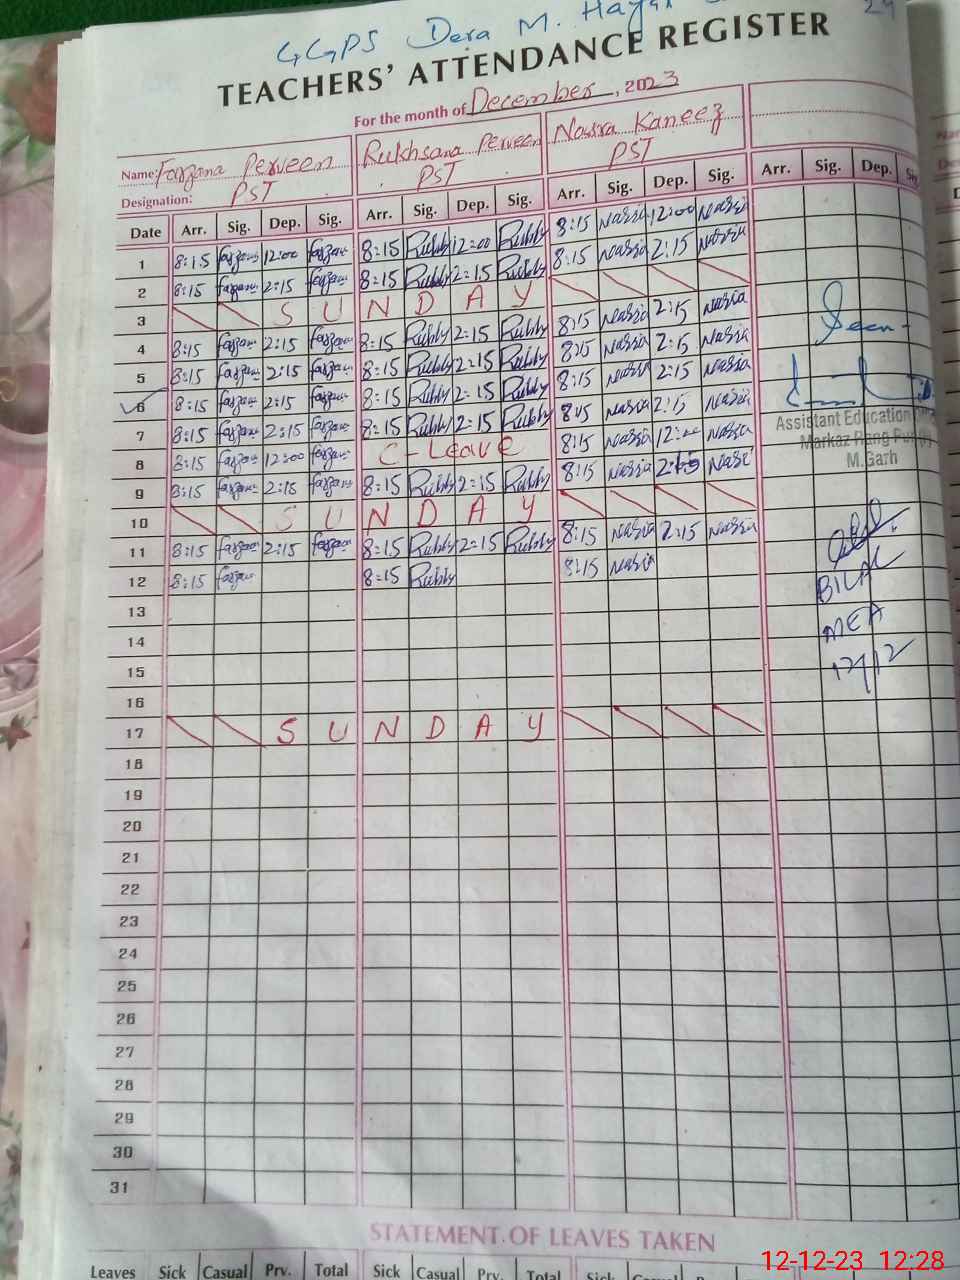 GGPS Dera M. Hayat
29
TEACHERS' ATTENDANCE REGISTER
For the month of December, 2023
Name: Farzana Perveen Rukhsana Perveen Nasra Kaneez
Designation: PST PST PST
Date Arr. Sig. Dep. Sig. Arr. Sig. Dep. Sig. Arr. Sig. Dep. Sig. Arr. Sig. Dep. Sig.
1 8:15 Farzana 12:00 Farzana 8:15 Rubby 12:00 Rubby 8:15 Nasra 12:00 Nasra
2 8:15 Farzana 2:15 Farzana 8:15 Rubby 2:15 Rubby 8:15 Nasra 2:15 Nasra
3 S U N D A Y
4 8:15 Farzana 2:15 Farzana 8:15 Rubby 2:15 Rubby 8:15 Nasra 2:15 Nasra
5 8:15 Farzana 2:15 Farzana 8:15 Rubby 2:15 Rubby 8:15 Nasra 2:15 Nasra
6 8:15 Farzana 2:15 Farzana 8:15 Rubby 2:15 Rubby 8:15 Nasra 2:15 Nasra
7 8:15 Farzana 2:15 Farzana 8:15 Rubby 2:15 Rubby 8:15 Nasra 2:15 Nasra
8 8:15 Farzana 12:00 Farzana C-Leave 8:15 Nasra 12:00 Nasra
9 8:15 Farzana 2:15 Farzana 8:15 Rubby 2:15 Rubby 8:15 Nasra 2:15 Nasra
10 S U N D A Y
11 8:15 Farzana 2:15 Farzana 8:15 Rubby 2:15 Rubby 8:15 Nasra 2:15 Nasra
12 8:15 Farzana 8:15 Rubby 8:15 Nasra
13
14
15
16
17 S U N D A Y
18
19
20
21
22
23
24
25
26
27
28
29
30
31
Seen
Assistant Education
Markaz Rang Pur
M.Garh
BILAL
MEA
12/12
STATEMENT OF LEAVES TAKEN
Leaves Sick Casual Prv. Total Sick Casual Prv. Total Sick
12-12-23 12:28